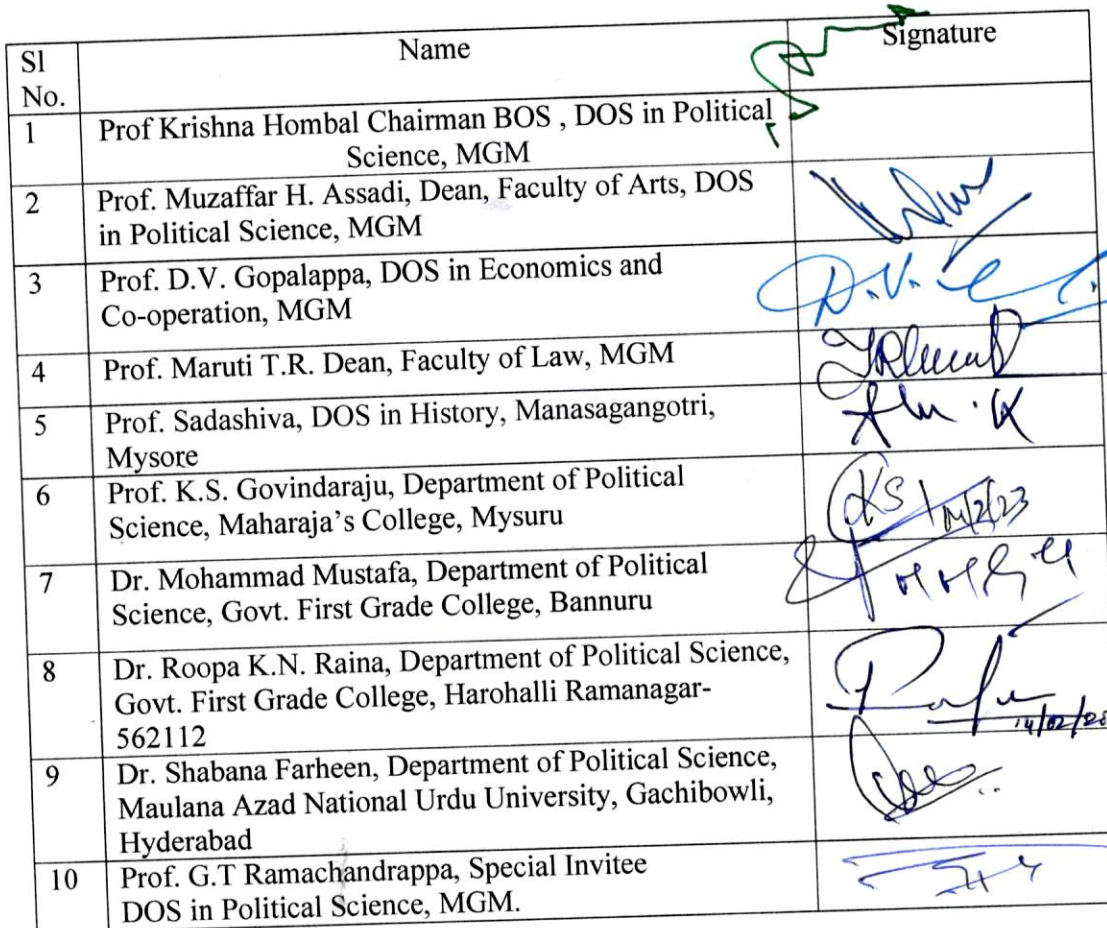 Sl
No.
Name
Signature
1
Prof Krishna Hombal Chairman BOS , DOS in Political
Science, MGM
2
Prof. Muzaffar H. Assadi, Dean, Faculty of Arts, DOS
in Political Science, MGM
3
Prof. D.V. Gopalappa, DOS in Economics and
Co-operation, MGM
D.V.
4
Prof. Maruti T.R. Dean, Faculty of Law, MGM
5
Prof. Sadashiva, DOS in History, Manasagangotri,
Mysore
6
Prof. K.S. Govindaraju, Department of Political
Science, Maharaja's College, Mysuru
KS 14/2/23
7
Dr. Mohammad Mustafa, Department of Political
Science, Govt. First Grade College, Bannuru
8
Dr. Roopa K.N. Raina, Department of Political Science,
Govt. First Grade College, Harohalli Ramanagar-
562112
9
Dr. Shabana Farheen, Department of Political Science,
Maulana Azad National Urdu University, Gachibowli,
Hyderabad
10
Prof. G.T Ramachandrappa, Special Invitee
DOS in Political Science, MGM.